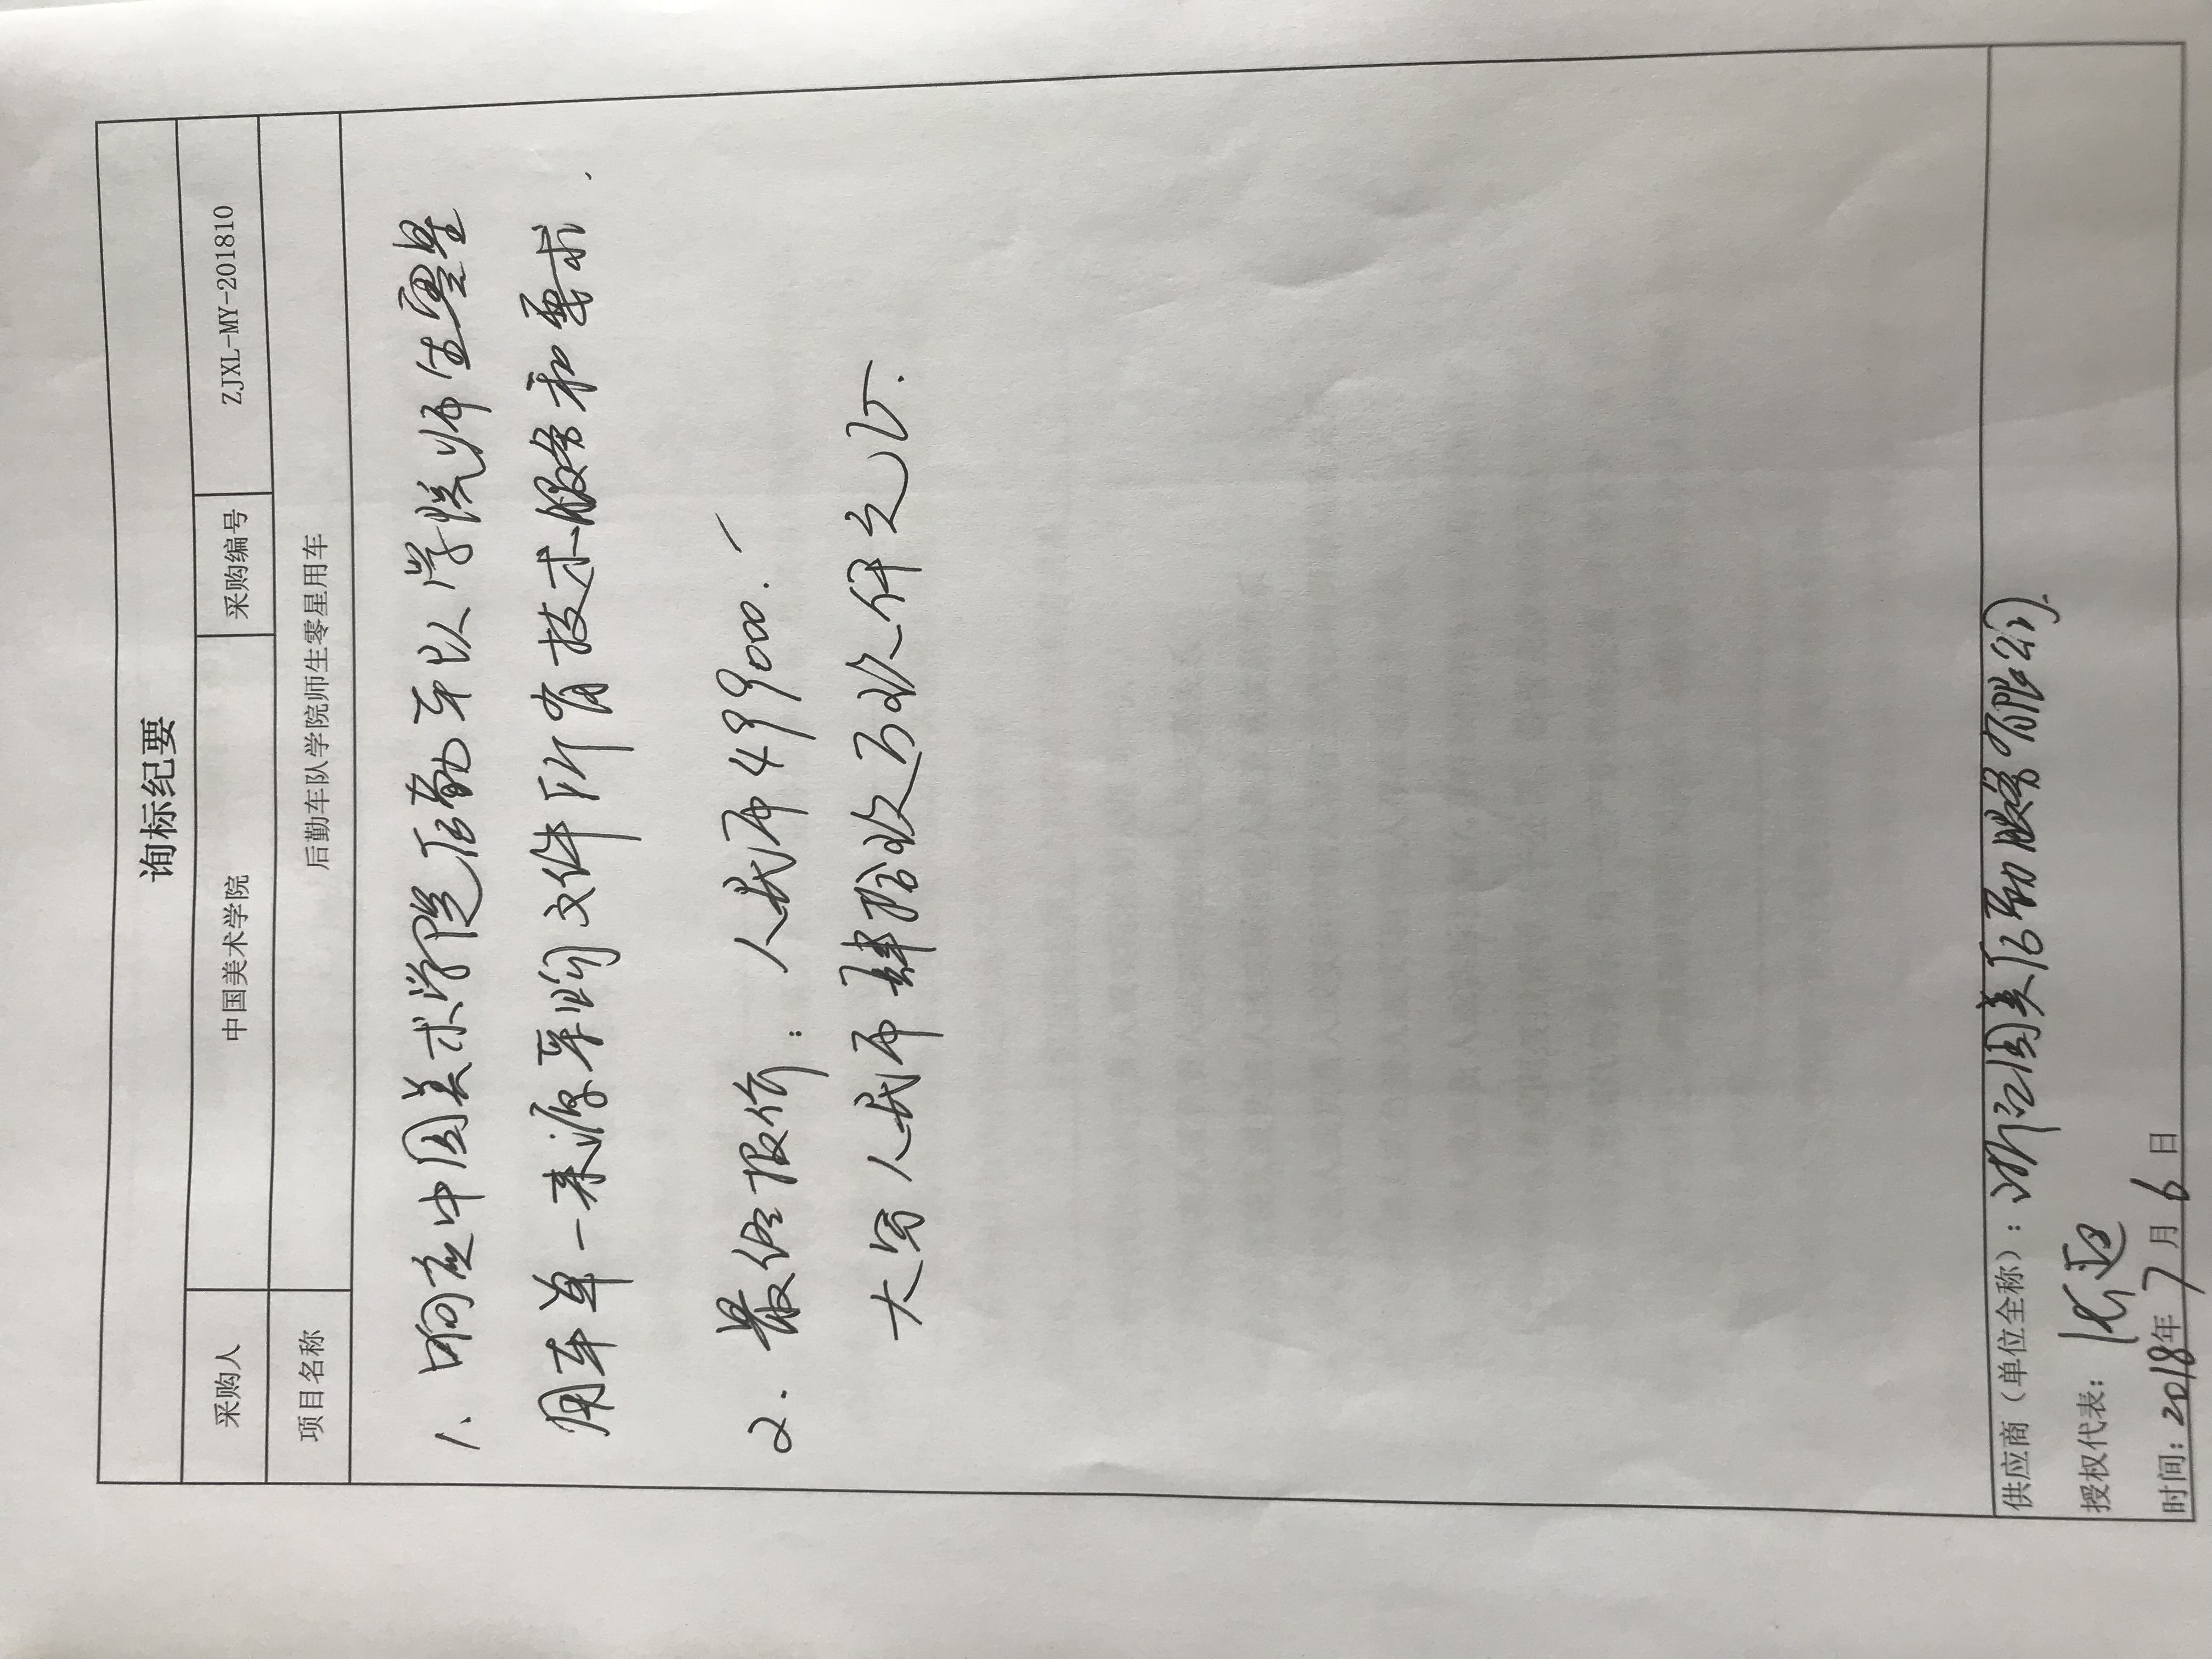 询标纪要
采购人 中国美术学院 采购编号 ZJXL-MY-201810
项目名称 后勤车队学院师生零星用车
1、响应中国美术学院后勤车队学院师生零星
用车单一来源采购文件所有技术服务和要求.
2. 最终报价：人民币499000.
大写人民币肆拾玖万玖仟元正.
供应商（单位全称）: 浙江国美后勤服务有限公司.
授权代表:
时间: 2018年7月6日